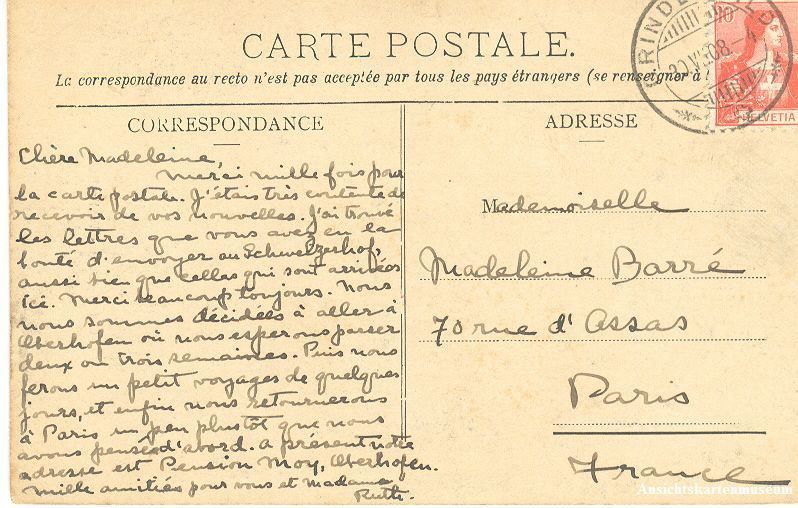 CARTE POSTALE.
La correspondance au recto n'est pas acceptée par tous les pays étrangers (se renseigner à
CORRESPONDANCE
Chère Madeleine,
Merci mille fois pour
la carte postale. J'étais très contente de
recevoir de vos nouvelles. J'ai trouvé
les lettres que vous avez en la
bonté d'envoyer au Schweizerhof,
aussi bien que celles qui sont arrivées
ici. Merci beaucoup toujours. Nous
nous sommes décidées à aller à
Oberhofen où nous esperons passer
deux ou trois semaines. Puis nous
ferons un petit voyages de quelques
jours, et enfin nous retournerons
à Paris un peu plustôt que nous
avons pensés d'abord. A présent notre
adresse est Pension Moy, Oberhofen.
Mille amitiés pour vous et Madame
Ruth.
ADRESSE
Mademoiselle
Madeleine Barré
70 rue d'Assas
Paris
France
GRINDELWALD
08
10
HELVETIA
Ansichtskartenmuseum